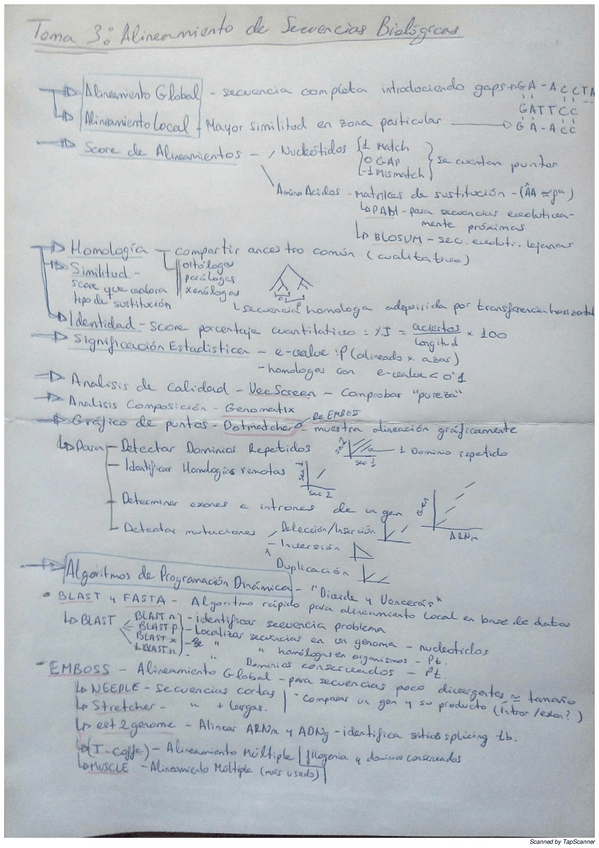 Tema 3: Alineamiento de Secuencias Biológicas
Alineamiento Global - secuencia completa introduciendo gaps → GA-ACCTA
GATTCC
Alineamiento Local - Mayor similitud en zona particular → GA-ACC
Score de Alineamientos - Nucleótidos { 1 Match
0 GAP } se cuentan puntos
-1 Mismatch
Amino Acidos - Matrices de sustitución -
PAM - para secuencias evolutiva-
mente próximas
BLOSUM - sec. evoluti. lejanas
Homología - compartir ancestro común (cualitativo)
ortólogos
Similitud - parálogos
score que valora xenólogos
tipo de sustitución
secuencia homologa adquirida por transferencia horizontal
Identidad - Score porcentaje cuantitativo = %I = aciertos / Longitud x 100
Significación Estadística - e-value: P (alineado x azar)
- homologos con e-value < 0'1
Analisis de Calidad - VecScreen - comprobar "pureza"
Analisis Composición - Genomatix
de EMBOSS
Gráfico de puntos - Dotmatcher - muestra alineación gráficamente
Para - Detectar Dominios Repetidos sec 1 1 Dominio repetido
- Identificar Homologías remotas sec 2
- Determinar exones e intrones de un gen ARNm
- Detectar mutaciones - Delección/Inserción
- Inversión
Duplicación
Algoritmos de Programación Dinámica - "Divide y Vencerás"
BLAST y FASTA - Algoritmo rápido para alineamiento Local en base de datos
BLAST BLAST n - identificar secuencia problema
BLAST p - Localizar secuencias en un genoma - nucleótidos
BLAST x - " " homólogas en organismos - Pt.
Dominios conservados - Pt
EMBOSS - Alineamiento Global - para secuencias poco divergentes ≃ tamaño
NEEDLE - Secuencias cortas - Comparar un gen y su producto (intron/exon?)
Stretcher - " + largas.
est2genome - Alinear ARNm y ADNg - identifica sitios splicing tb.
(T-Coffe) - Alineamiento Múltiple filogenia y dominios conservados
MUSCLE - Alineamiento Múltiple (más usado)
Scanned by TapScanner